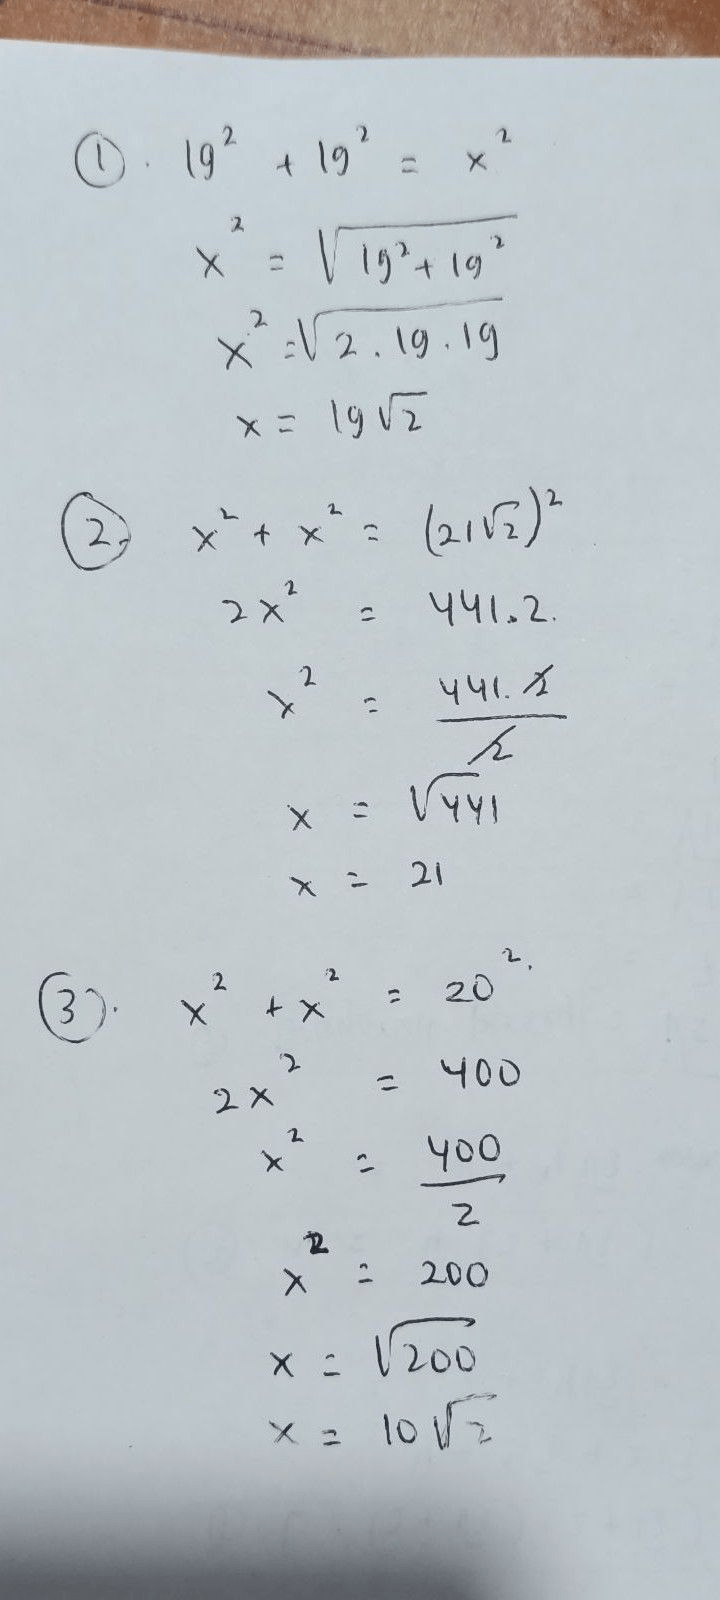 ①. 19² + 19² = x²
x² = √(19² + 19²)
x² = √(2 . 19 . 19)
x = 19√2
②. x² + x² = (21√2)²
2x² = 441.2.
x² = 441.2/2
x = √441
x = 21
③. x² + x² = 20².
2x² = 400
x² = 400/2
x² = 200
x = √200
x = 10√2